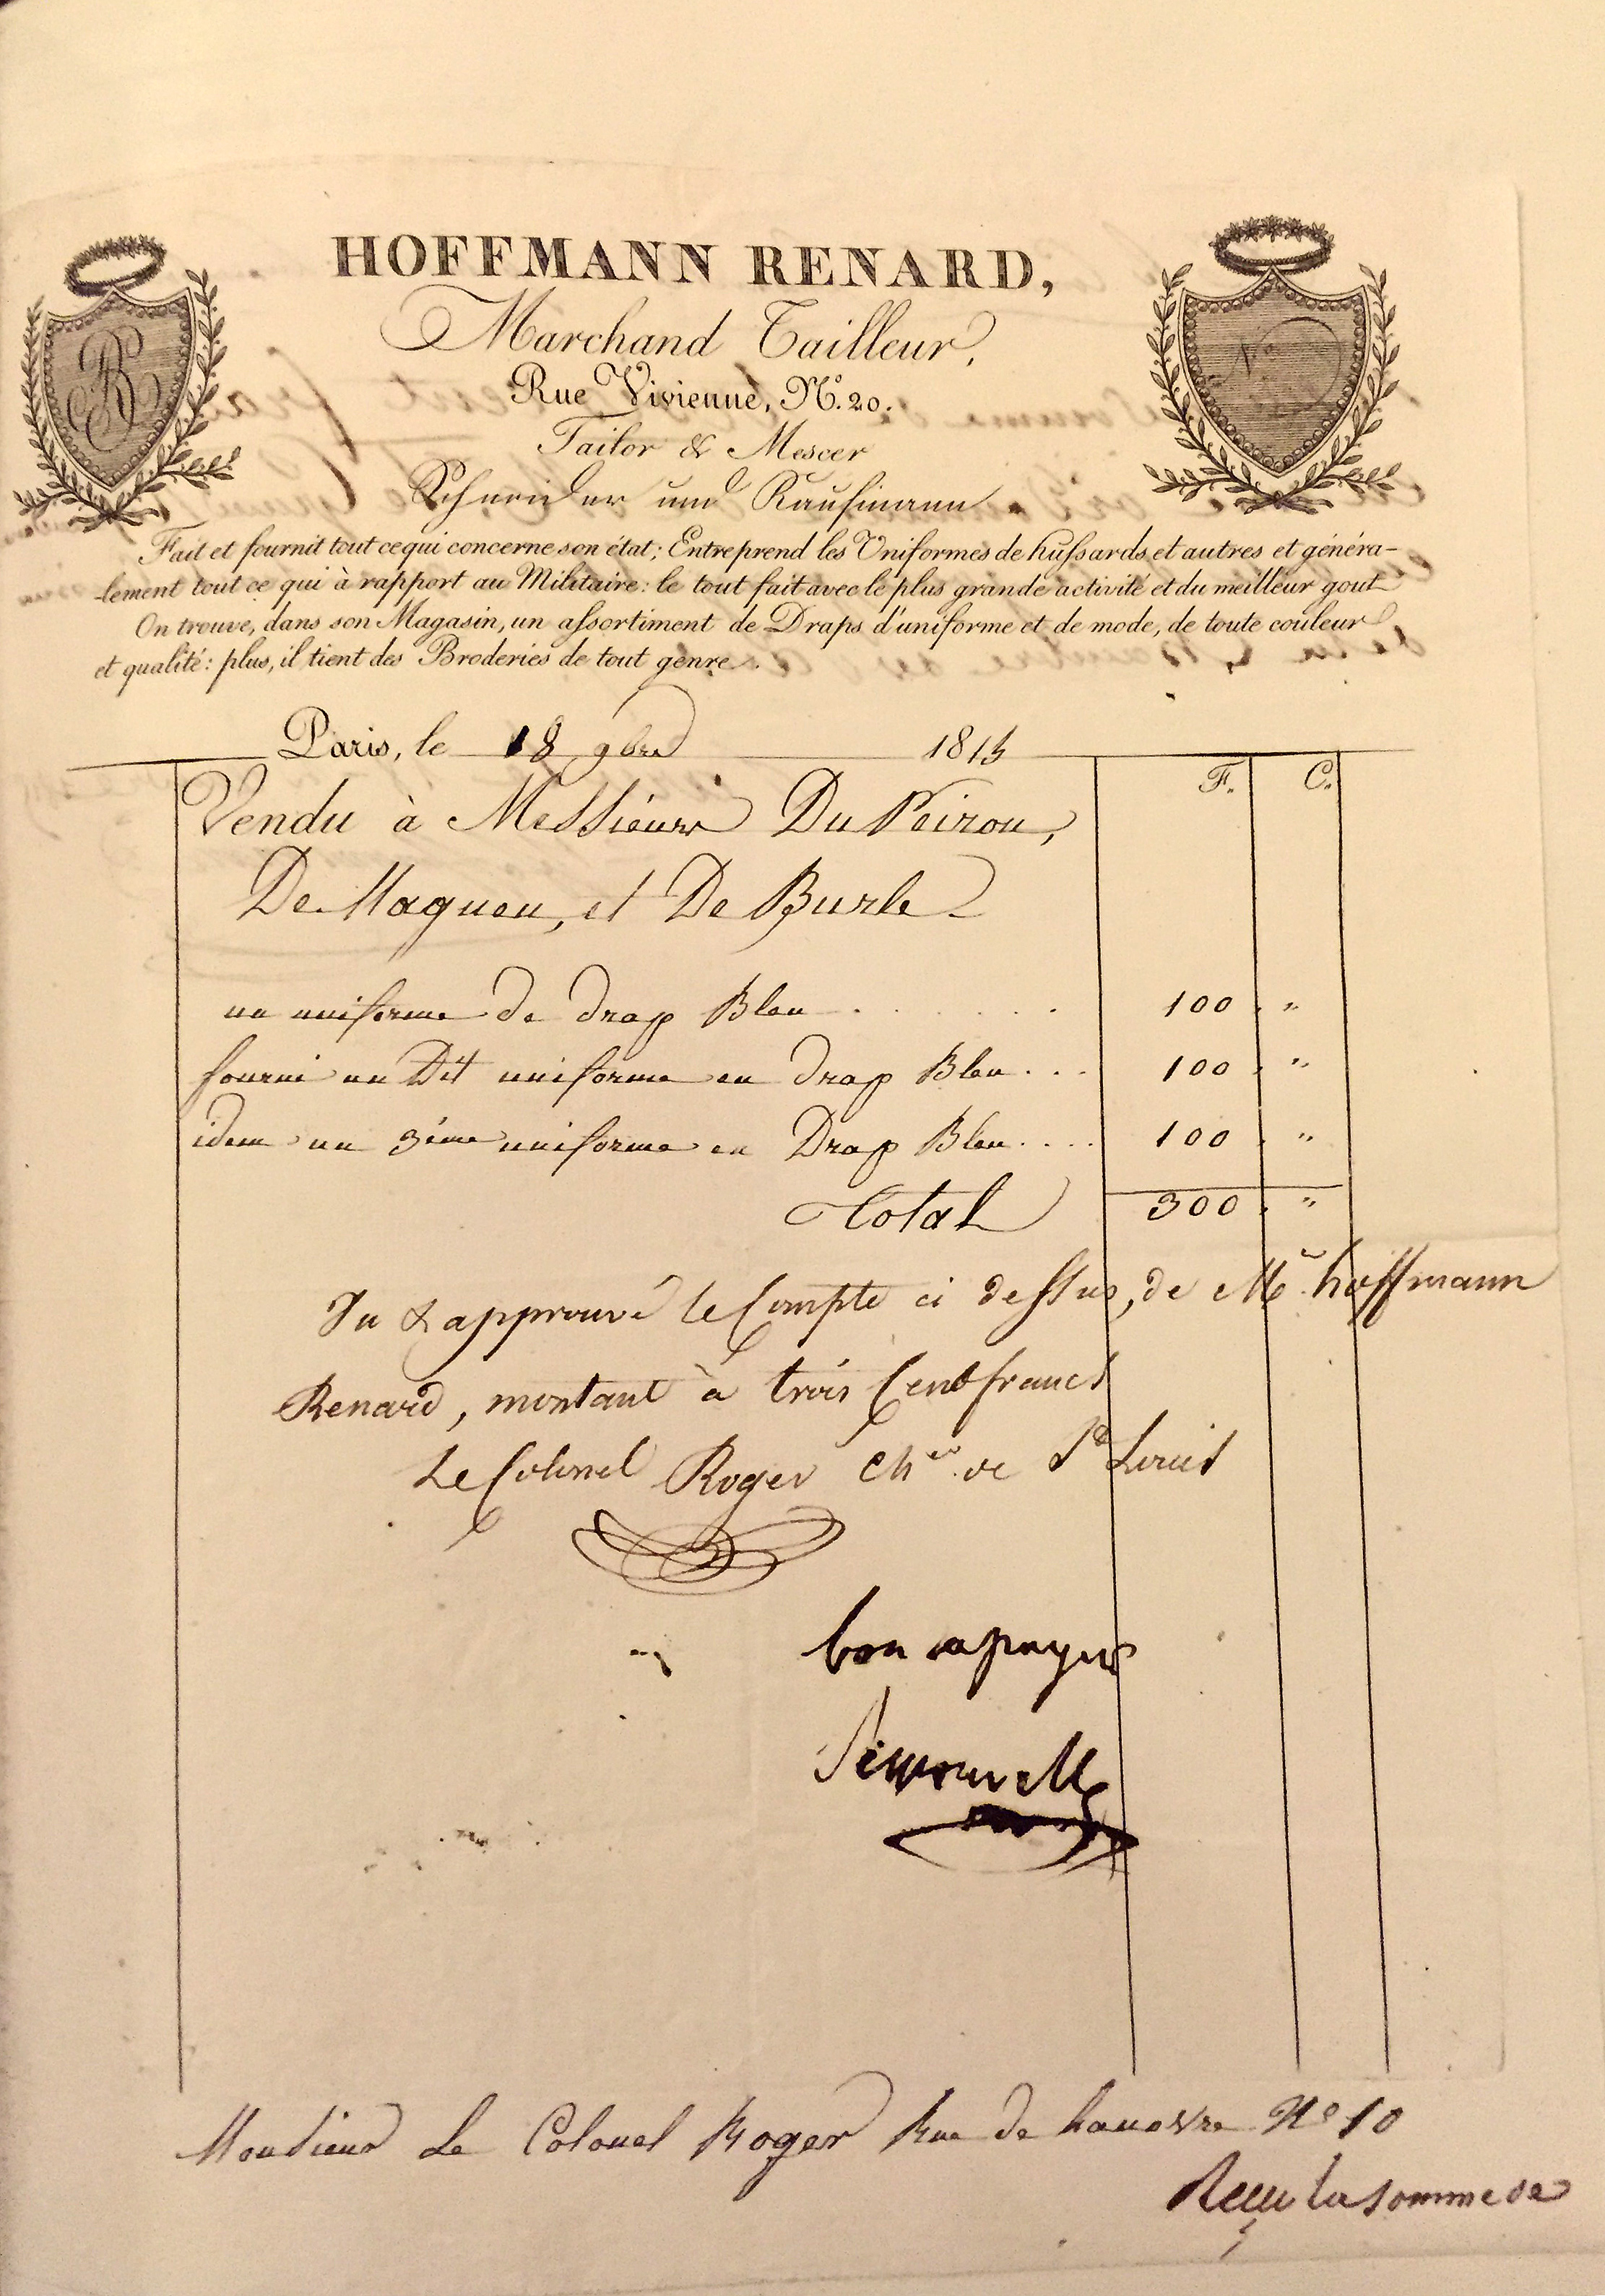 HOFFMANN RENARD,
Marchand Tailleur,
Rue Vivienne, N.º 20.
Tailor & Mescer
Schneider und Kaufmann
Fait et fournit tout ce qui concerne son état; Entreprend les Uniformes de hussards et autres et généra-
-lement tout ce qui à rapport au Militaire: le tout fait avec le plus grande activité et du meilleur gout
On trouve, dans son Magasin, un assortiment de Draps d'uniforme et de mode, de toute couleur
et qualité: plus, il tient des Broderies de tout genre.
Paris, le 18 9bre 1815
F. C.
Vendu à Messieurs Du Peirou,
De Magneu, et De Burle
un uniforme de drap Bleu . . . . . . 100 . "
fourni un Dit uniforme en drap Bleu . . . 100 . "
idem un 3ème uniforme en Drap Bleu . . . . 100 . "
Total 300 . "
Vu & approuvé le Compte ci dessus, de Mr hoffmann
Renard, montant à trois Cent francs
Le Colonel Roger Cher de St Louis
bon a payer
Monsieur Le Colonel Roger Rue de hanovre No 10
Reçu la somme de